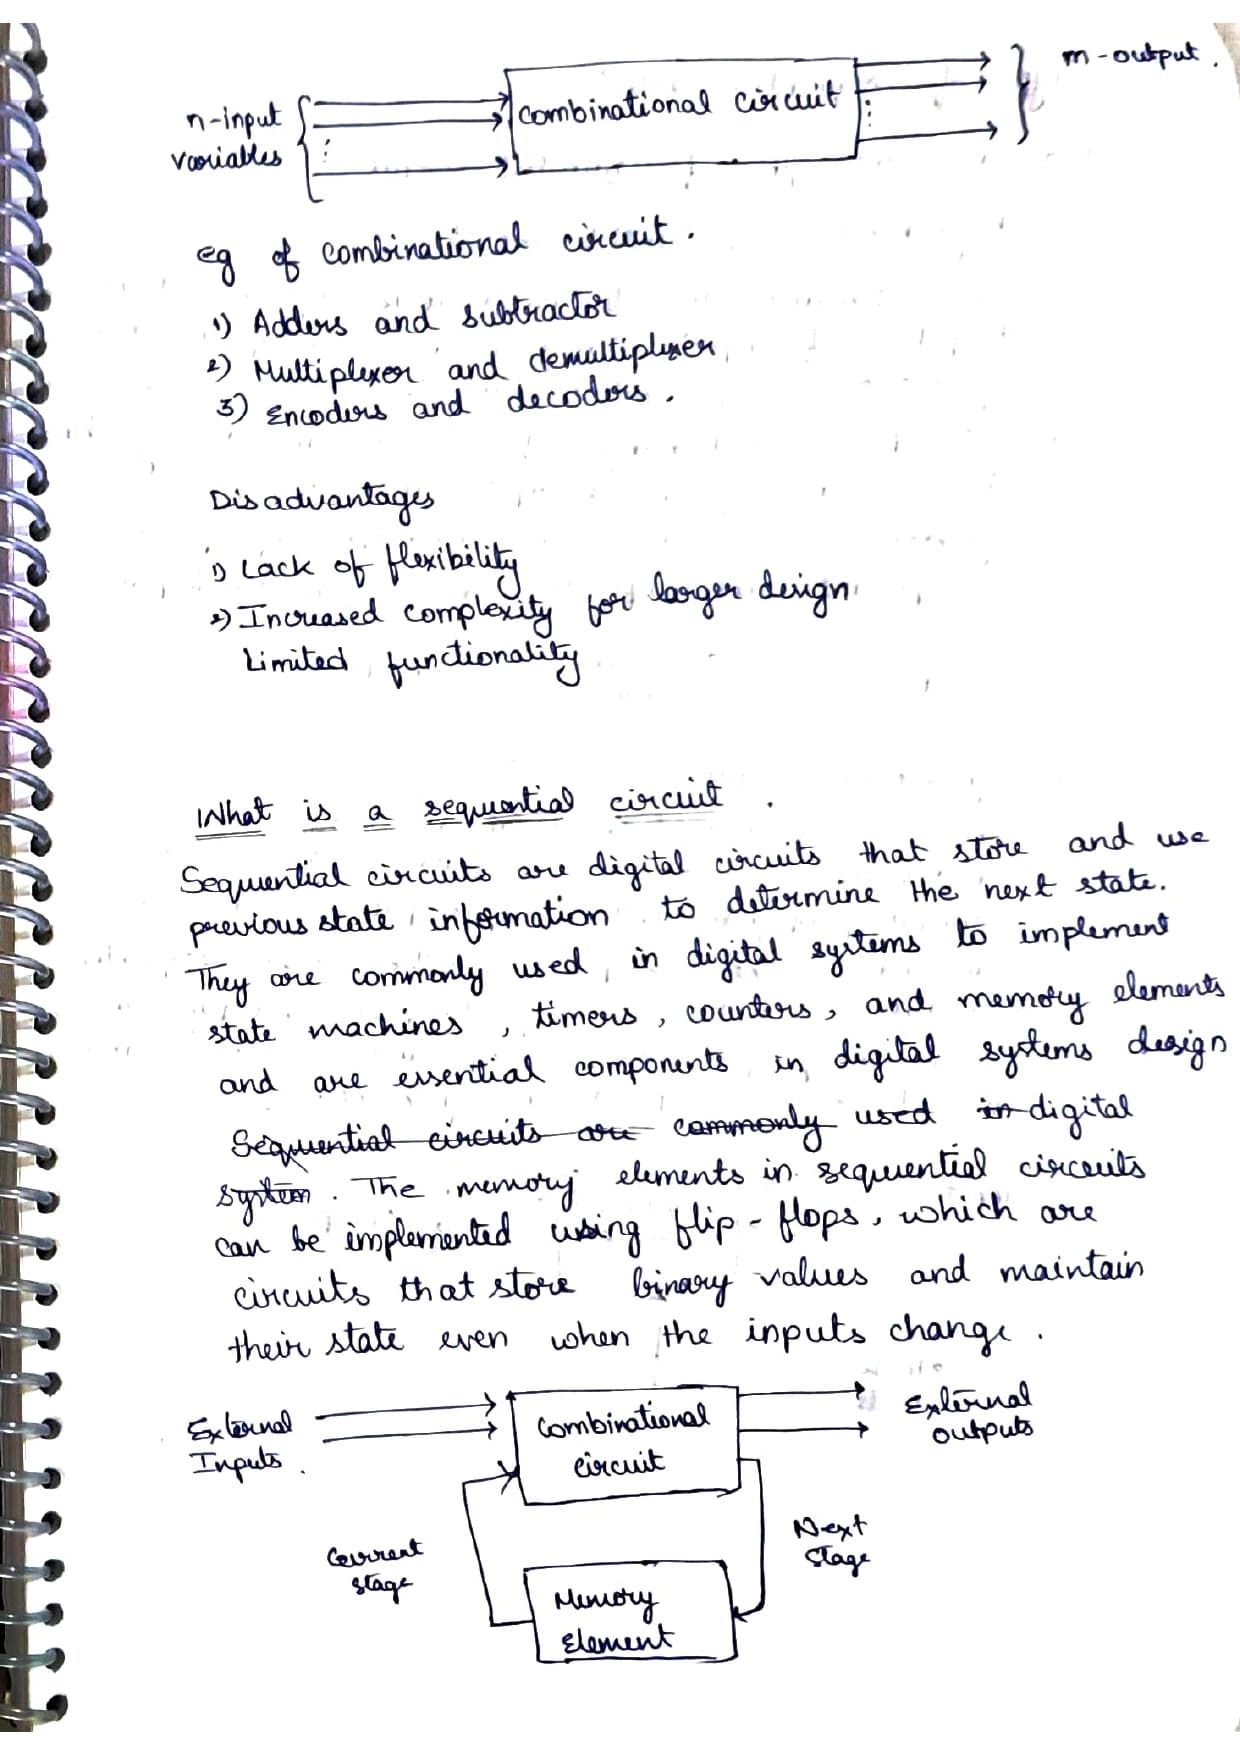 m-output.
n-input
variables
Combinational circuit
eg of combinational circuit.
1) Adders and subtractor
2) Multiplexer and demultiplexer
3) Encoders and decoders.
Disadvantages
1) Lack of flexibility
2) Increased complexity for larger design
Limited functionality
What is a sequential circuit.
Sequential circuits are digital circuits that store and use
previous state information to determine the next state.
They are commonly used in digital systems to implement
state machines, timers, counters, and memory elements
and are essential components in digital systems design
Sequential circuits are commonly used in digital
system. The memory elements in sequential circuits
can be implemented using flip-flops, which are
circuits that store binary values and maintain
their state even when the inputs change.
External
Inputs.
Combinational
circuit
External
outputs
Current
stage
Next
stage
Memory
Element